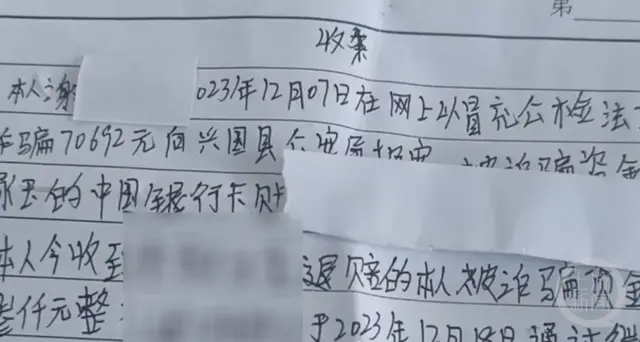 第
收案
本人谢 2023年12月07日在网上以冒充公检法
诈骗70692元向兴国县公安局报案 被诈骗资金
的中国银行卡账
本人今收到 退赔的本人被诈骗资金
叁仟元整 于2023年12月18日通过